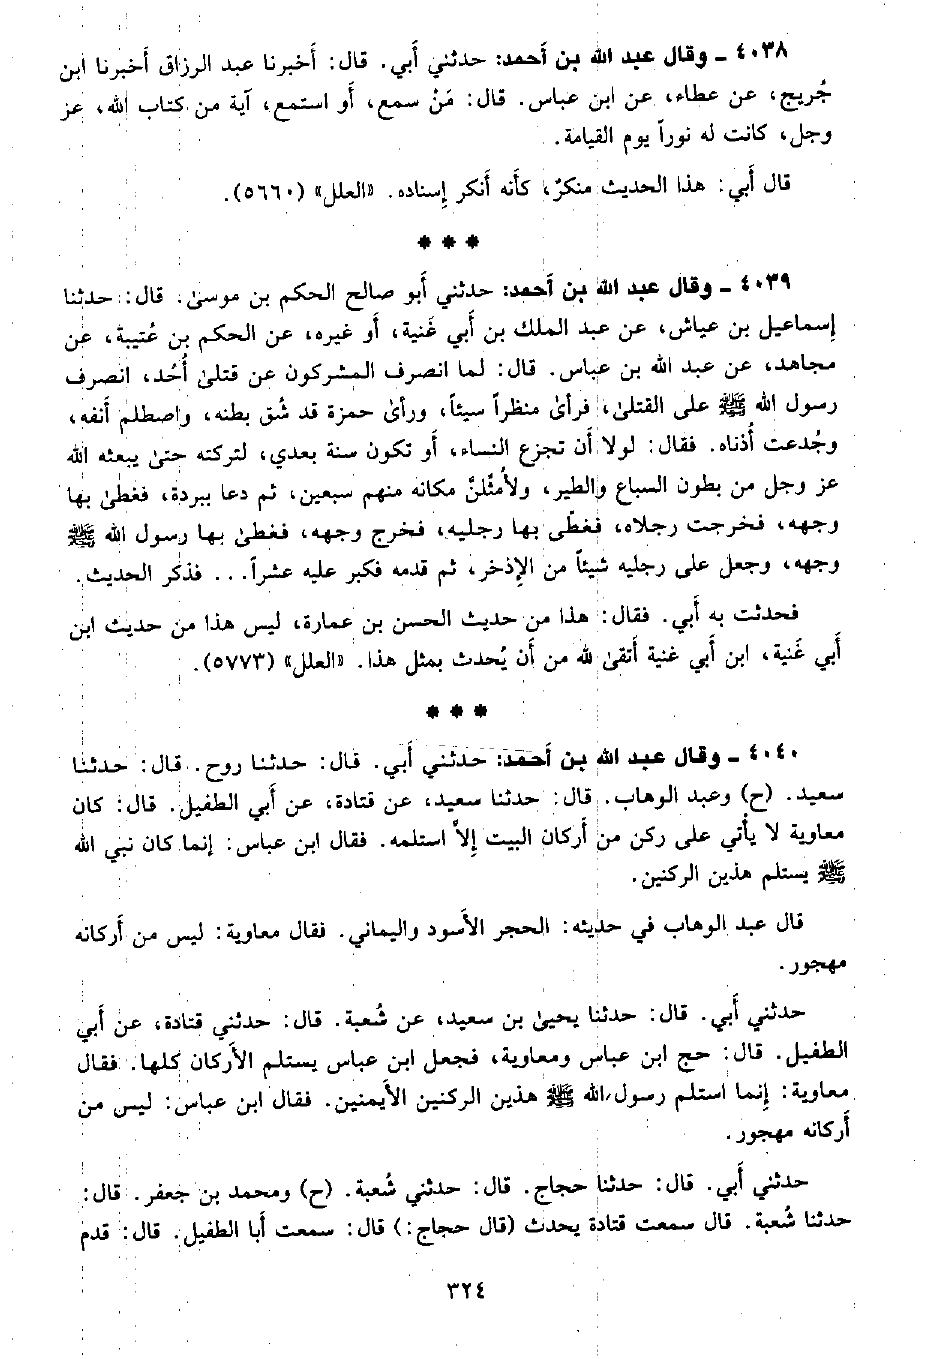 ٤٠٣٨ ـ وقال عبد الله بن أحمد: حدثني أبي. قال: أخبرنا عبد الرزاق أخبرنا ابن
جُريج، عن عطاء، عن ابن عباس. قال: مَنْ سمع، أو استمع، آية من كتاب الله، عز
وجل، كانت له نوراً يوم القيامة.
قال أبي: هذا الحديث منكرٌ، كأنه أنكر إسناده. «العلل» (٥٦٦٠).
***
٤٠٣٩ ـ وقال عبد الله بن أحمد: حدثني أبو صالح الحكم بن موسىٰ. قال: حدثنا
إسماعيل بن عياش، عن عبد الملك بن أبي غَنية، أو غيره، عن الحكم بن عُتيبة، عن
مجاهد، عن عبد الله بن عباس. قال: لما انصرف المشركون عن قتلىٰ أُحُد، انصرف
رسول الله ﷺ على القتلىٰ، فرأىٰ منظراً سيئاً، ورأىٰ حمزة قد شُق بطنه، واصطلم أنفه،
وجُدعت أُذناه. فقال: لولا أن تجزع النساء، أو تكون سنة بعدي، لتركته حتىٰ يبعثه الله
عز وجل من بطون السباع والطير، ولأُمثِّلنَّ مكانه منهم سبعين، ثم دعا ببردة، فغطىٰ بها
وجهه، فخرجت رجلاه، فغطّى بها رجليه، فخرج وجهه، فغطىٰ بها رسول الله ﷺ
وجهه، وجعل على رجليه شيئاً من الإذخر، ثم قدمه فكبر عليه عشراً... فذكر الحديث.
فحدثت به أبي. فقال: هذا من حديث الحسن بن عمارة، ليس هذا من حديث ابن
أبي غَنية، ابن أبي غنية أتقىٰ لله من أن يُحدث بمثل هذا. «العلل» (٥٧٧٣).
***
٤٠٤٠ ـ وقال عبد الله بن أحمد: حدثني أبي. قال: حدثنا روح. قال: حدثنا
سعيد. (ح) وعبد الوهاب. قال: حدثنا سعيد، عن قتادة، عن أبي الطفيل. قال: كان
معاوية لا يأتي على ركن من أركان البيت إلاَّ استلمه. فقال ابن عباس: إنما كان نبي الله
ﷺ يستلم هذين الركنين.
قال عبد الوهاب في حديثه: الحجر الأسود واليماني. فقال معاوية: ليس من أركانه
مهجور.
حدثني أبي. قال: حدثنا يحيىٰ بن سعيد، عن شُعبة. قال: حدثني قتادة، عن أبي
الطفيل. قال: حج ابن عباس ومعاوية، فجعل ابن عباس يستلم الأركان كلها. فقال
معاوية: إنما استلم رسول الله ﷺ هذين الركنين الأيمنين. فقال ابن عباس: ليس من
أركانه مهجور.
حدثني أبي. قال: حدثنا حجاج. قال: حدثني شُعبة. (ح) ومحمد بن جعفر. قال:
حدثنا شُعبة. قال سمعت قتادة يحدث (قال حجاج:) قال: سمعت أبا الطفيل. قال: قدم
٣٢٤